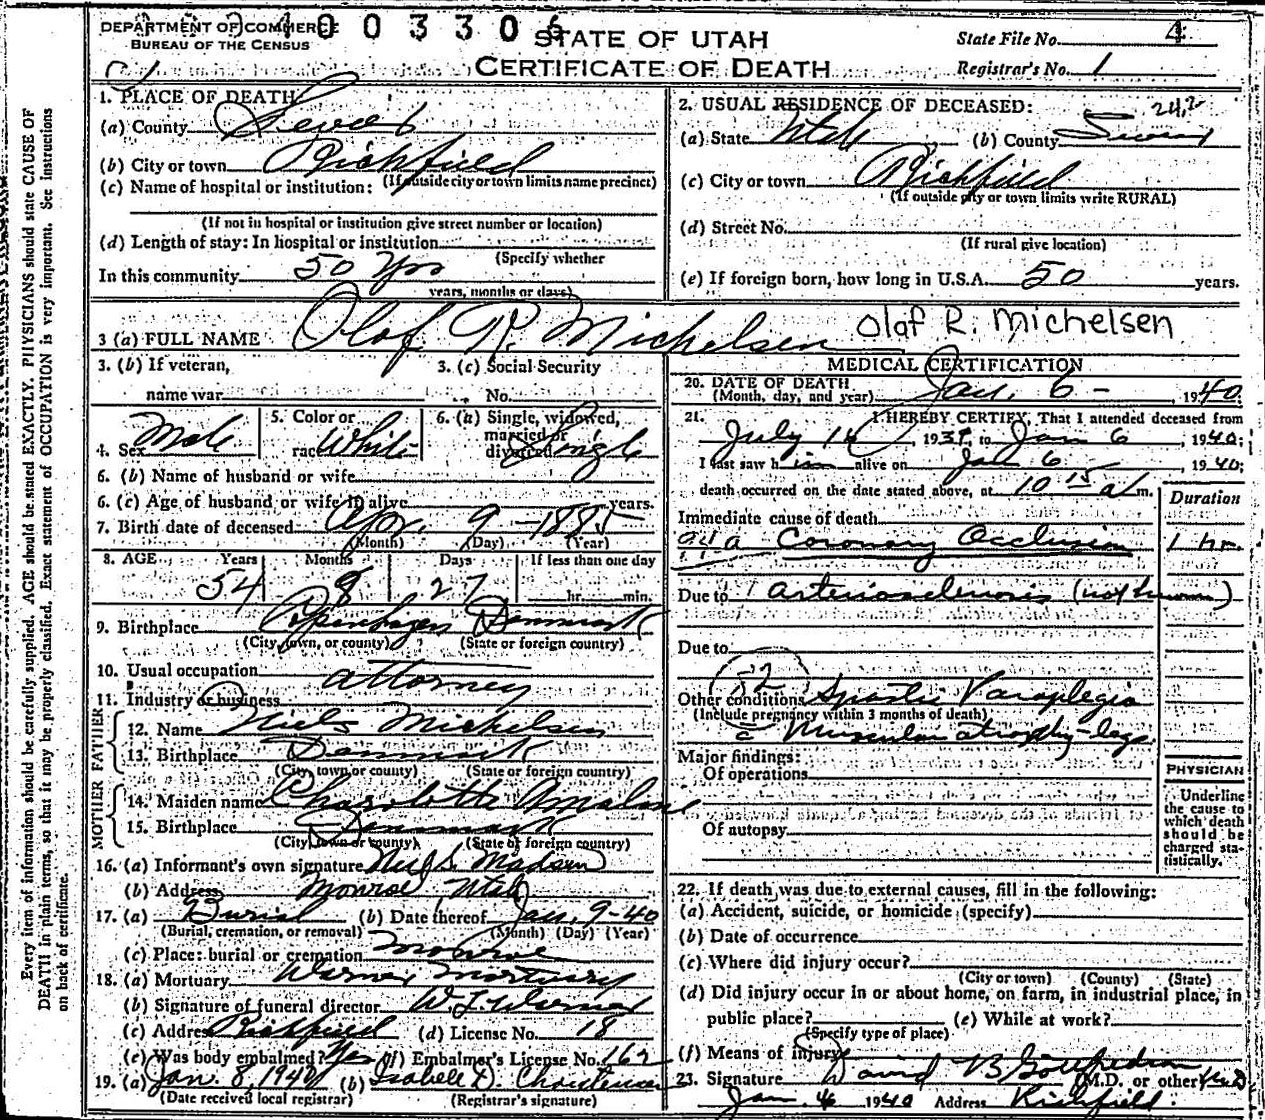 DEPARTMENT OF COMMERCE
BUREAU OF THE CENSUS
4003306
STATE OF UTAH
CERTIFICATE OF DEATH
State File No. 4
Registrar's No. 1
Every item of information should be carefully supplied. AGE should be stated EXACTLY. PHYSICIANS should state CAUSE OF
DEATH in plain terms, so that it may be properly classified. Exact statement of OCCUPATION is very important. See instructions
on back of certificate.
1. PLACE OF DEATH
(a) County Sevier
(b) City or town Richfield
(If outside city or town limits name precinct)
(c) Name of hospital or institution:
(If not in hospital or institution give street number or location)
(d) Length of stay: In hospital or institution
(Specify whether
In this community 50 Yrs
years, months or days)
2. USUAL RESIDENCE OF DECEASED:
(a) State Utah (b) County Sevier
(c) City or town Richfield
(If outside city or town limits write RURAL)
(d) Street No.
(If rural give location)
(e) If foreign born, how long in U.S.A. 50 years.
3 (a) FULL NAME Olof R. Michelsen Olaf R. Michelsen
3. (b) If veteran, 3. (c) Social Security
name war No.
4. Sex Male 5. Color or race White 6. (a) Single, widowed, married or divorced Single
6. (b) Name of husband or wife
6. (c) Age of husband or wife if alive years.
7. Birth date of deceased Apr. 9 - 1885
(Month) (Day) (Year)
8. AGE Years Months Days If less than one day
54 8 27 hr. min.
9. Birthplace Copenhagen Denmark
(City, town, or county) (State or foreign country)
10. Usual occupation attorney
11. Industry or business
FATHER
12. Name Niels Michelsen
13. Birthplace Denmark
(City, town or county) (State or foreign country)
MOTHER
14. Maiden name Charolotte
15. Birthplace Denmark
(City, town or county) (State or foreign country)
16. (a) Informant's own signature Madsen
(b) Address Monroe Utah
17. (a) Burial (b) Date thereof Jan. 9-40
(Burial, cremation, or removal) (Month) (Day) (Year)
(c) Place: burial or cremation Monroe
18. (a) Mortuary Mortuary
(b) Signature of funeral director
(c) Address Richfield (d) License No. 18
(e) Was body embalmed? Yes (f) Embalmer's License No. 162
19. (a) Jan. 8, 1940 (b) Isabell D. Christensen
(Date received local registrar) (Registrar's signature)
MEDICAL CERTIFICATION
20. DATE OF DEATH Jan. 6 - , 1940.
(Month, day, and year)
21. I HEREBY CERTIFY, That I attended deceased from
July 16, 193 , to Jan 6, 1940;
I last saw him alive on Jan 6, 1940;
death occurred on the date stated above, at 10 15 a m.
Duration
Immediate cause of death
94a Coronary Occlusion 1 hr.
Due to arteriosclerosis (not known)
Due to
Other conditions Spastic Paraplegia
(Include pregnancy within 3 months of death)
c Muscular atrophy-legs
Major findings:
Of operations
Of autopsy
PHYSICIAN
Underline
the cause to
which death
should be
charged sta-
tistically.
22. If death was due to external causes, fill in the following:
(a) Accident, suicide, or homicide (specify)
(b) Date of occurrence
(c) Where did injury occur?
(City or town) (County) (State)
(d) Did injury occur in or about home, on farm, in industrial place, in
public place? (e) While at work?
(Specify type of place)
(f) Means of injury
23. Signature David B Gottfredson (M.D. or other)
Jan 1940 Address Richfield.